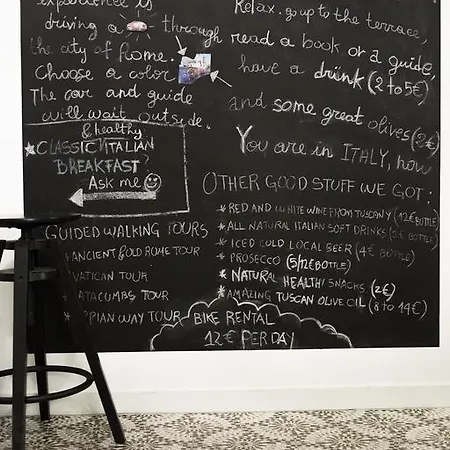 experience is
driving a through
the city of home.
Choose a color
The car and guide
will wait outside.
& healthy
CLASSIC ITALIAN
BREAKFAST?
Ask me
GUIDED WALKING TOURS
ANCIENT & OLD ROME TOUR
VATICAN TOUR
CATACUMBS TOUR
APPIAN WAY TOUR
Relax, go up to the terrace,
read a book or a guide,
have a drink (2 to 5€)
and some great olives (2€)
You are in ITALY, how
OTHER GOOD STUFF WE GOT:
RED AND WHITE WINE FROM TUSCANY (12€ BOTTLE)
ALL NATURAL ITALIAN SOFT DRINKS BOTTLE)
ICED COLD LOCAL BEER (4€ BOTTLE)
PROSECCO (5/12€ BOTTLE)
NATURAL HEALTHY SNACKS (2€)
AMAZING TUSCAN OLIVE OIL (8 to 14€)
BIKE RENTAL
12€ PER DAY